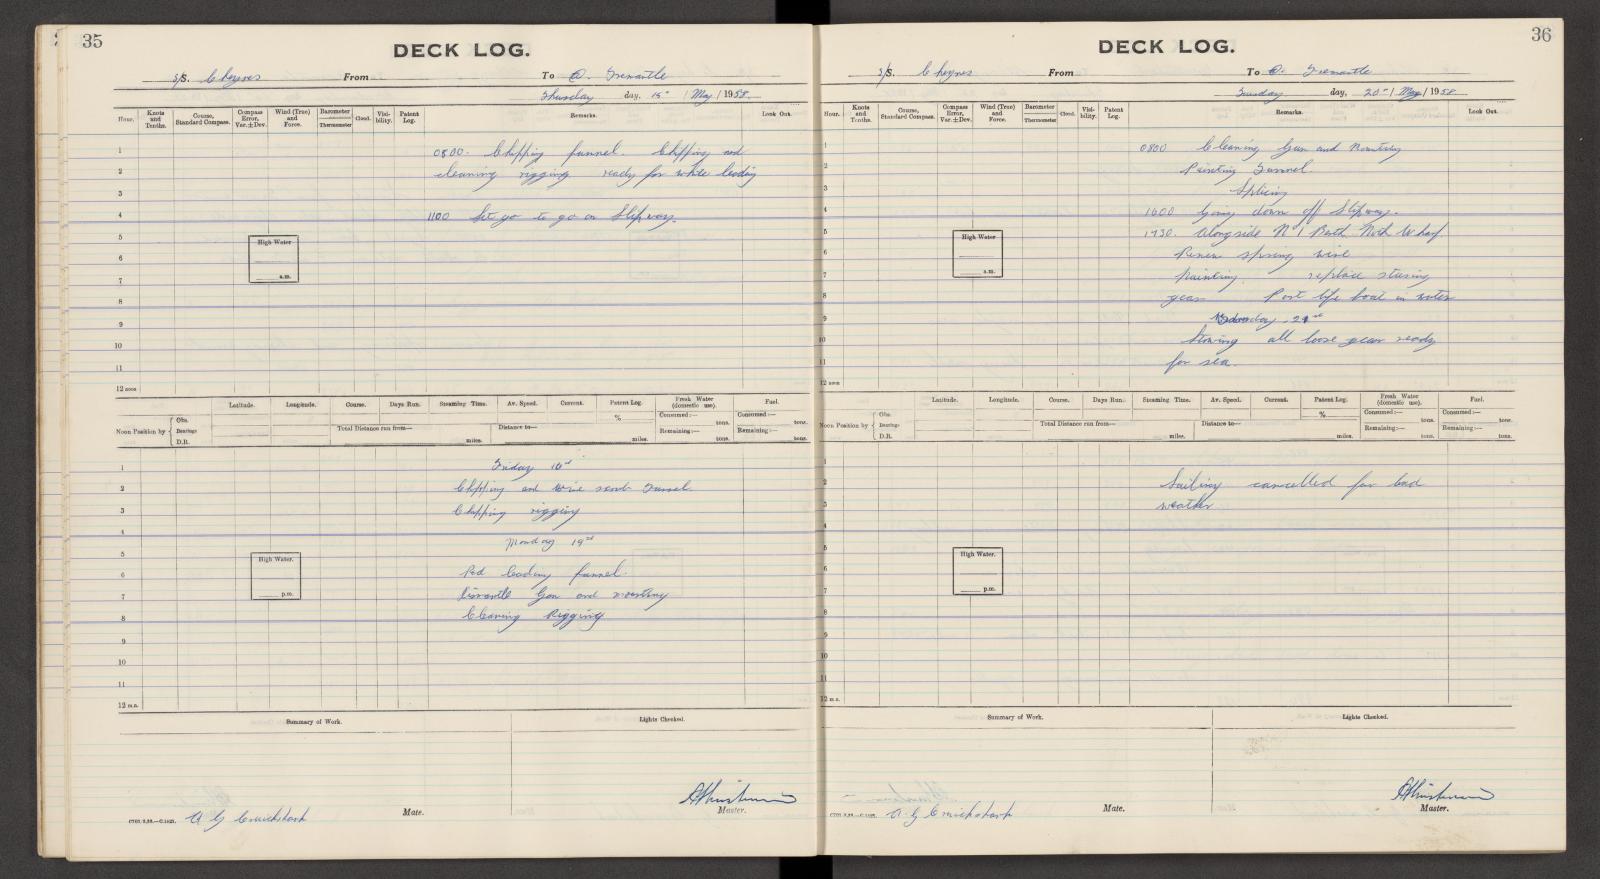 35
DECK LOG.
S/S. Cheynes From To @. Fremantle
Thursday day, 15th / May / 1958.
Hour. Knots and Tenths. Course, Standard Compass. Compass Error, Var. ± Dev. Wind (True) and Force. Barometer Thermometer Cloud. Visibility. Patent Log. Remarks. Look Out.
1 0800. Chipping funnel. Chipping and
2 cleaning rigging ready for white leading
3
4 1100 to go on Slipway.
5
High Water
6
a.m.
7
8
9
10
11
12 noon
Latitude. Longitude. Course. Days Run. Steaming Time. Av. Speed. Current. Patent Log. Fresh Water (domestic use). Fuel.
Noon Position by { Obs. Bearings D.R. Total Distance run from— miles. Distance to— miles. % Consumed:— tons. Remaining:— tons. Consumed:— tons. Remaining:— tons.
1 Friday 16th
2 Chipping and wire funnel.
3 Chipping rigging
4
Monday 19th
5
High Water.
6 Red leading funnel.
p.m.
7 Dismantle Gun and mounting
8 Cleaning Rigging
9
10
11
12 m.n.
Summary of Work. Lights Checked.
A G Cruickshank Mate. Master.
36
DECK LOG.
S/S. Cheynes From To @. Fremantle
Tuesday day, 20th / May / 1958
Hour. Knots and Tenths. Course, Standard Compass. Compass Error, Var. ± Dev. Wind (True) and Force. Barometer Thermometer Cloud. Visibility. Patent Log. Remarks. Look Out.
1 0800 Cleaning Gun and Mounting
2 Painting Funnel.
3 Splicing
4 1600 Going down off Slipway.
5 1730. Alongside No 1 Berth North Wharf
High Water
6 Renew spring wire
a.m.
7 Painting. replace steering
8 gear Port life boat in water
9 Wednesday 21st
10 Stowing all loose gear ready
11 for sea.
12 noon
Latitude. Longitude. Course. Days Run. Steaming Time. Av. Speed. Current. Patent Log. Fresh Water (domestic use). Fuel.
Noon Position by { Obs. Bearings D.R. Total Distance run from— miles. Distance to— miles. % Consumed:— tons. Remaining:— tons. Consumed:— tons. Remaining:— tons.
1
2 Sailing cancelled for bad
3 weather
4
5
High Water.
6
p.m.
7
8
9
10
11
12 m.n.
Summary of Work. Lights Checked.
A G Cruickshank Mate. Master.